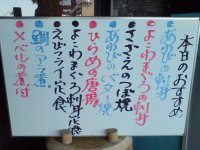 本日のおすすめ
・あわびの刺身
・よこわまぐろの刺身
・さざえのつぼ焼
・あわびのバター焼
・ひらめの唐揚
・よこわまぐろ刺身定食
・えびフライ定食
・鯛のアラ煮
・メバルの煮付